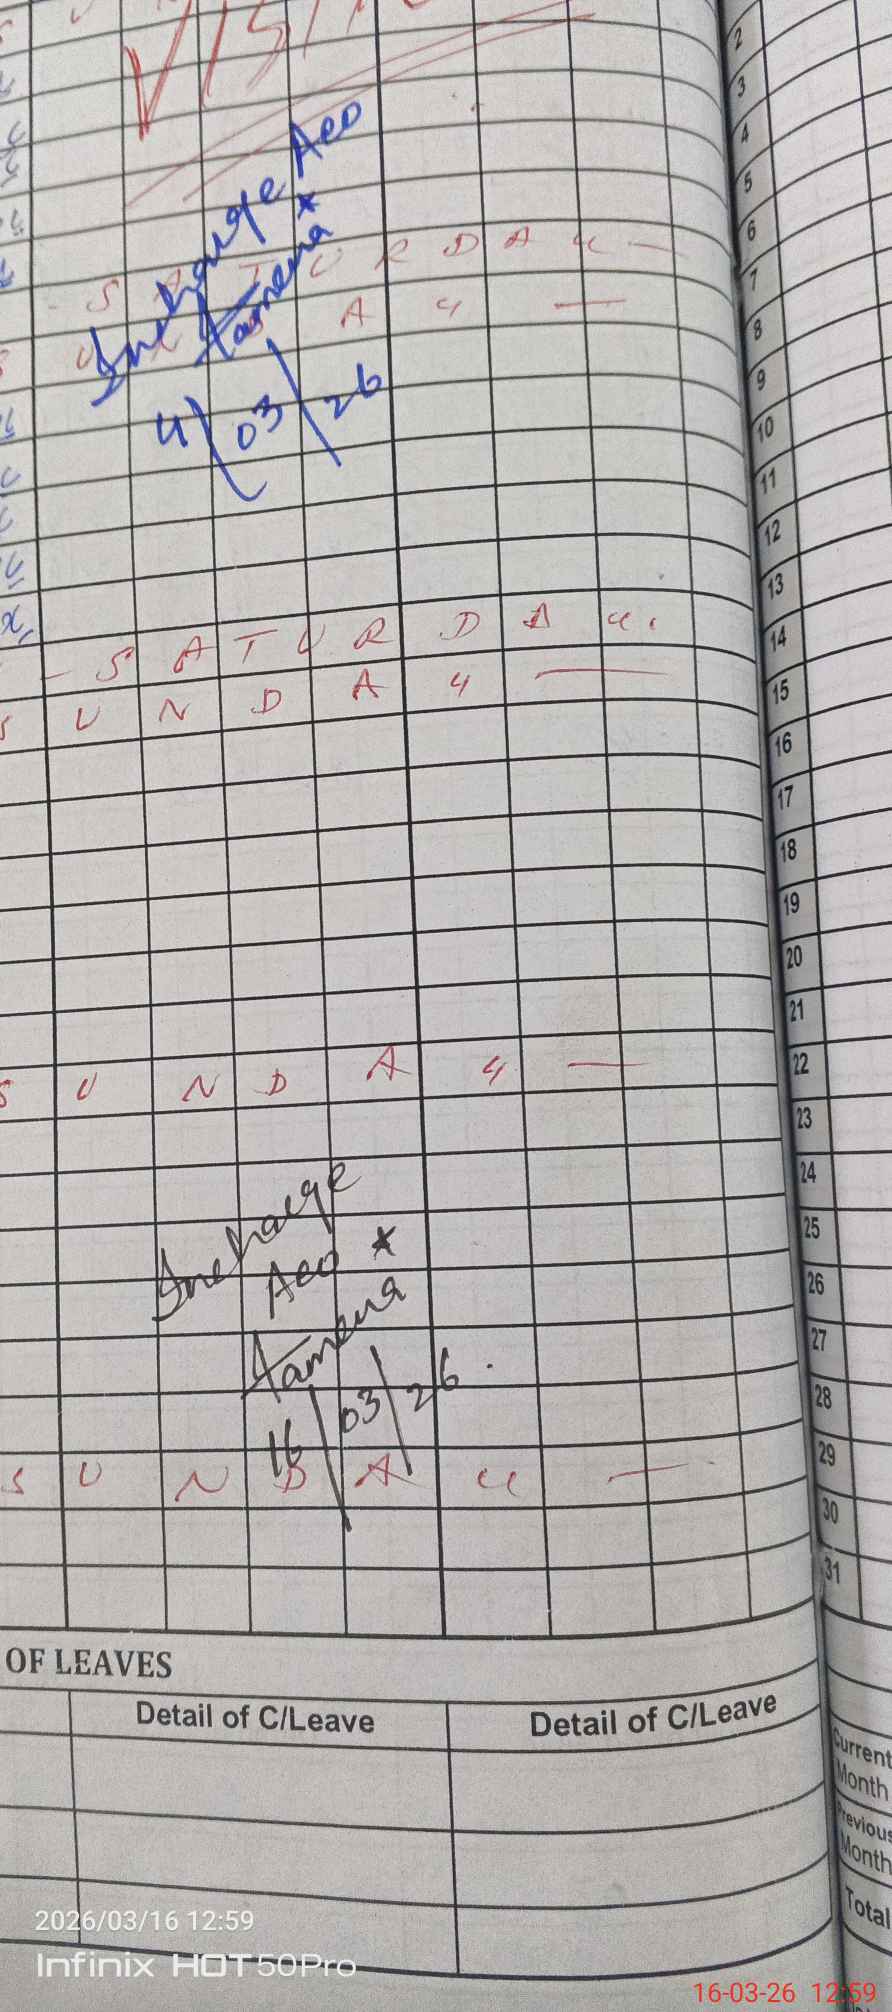 VISI
2
3
4
5
6
7
8
9
10
11
12
13
14
15
16
17
18
19
20
21
22
23
24
25
26
27
28
29
30
31
Incharge Aeo
*
Tamena
4/03/26
- S A T U R D A Y -
S U N D A Y -
- S A T U R D A Y.
S U N D A Y -
S U N D A Y -
Incharge
Aeo *
Tamena
16/03/26.
S U N D A Y -
OF LEAVES
Detail of C/Leave Detail of C/Leave
Current
Month
Previous
Month
Total
2026/03/16 12:59
Infinix HOT 50Pro
16-03-26 12:59